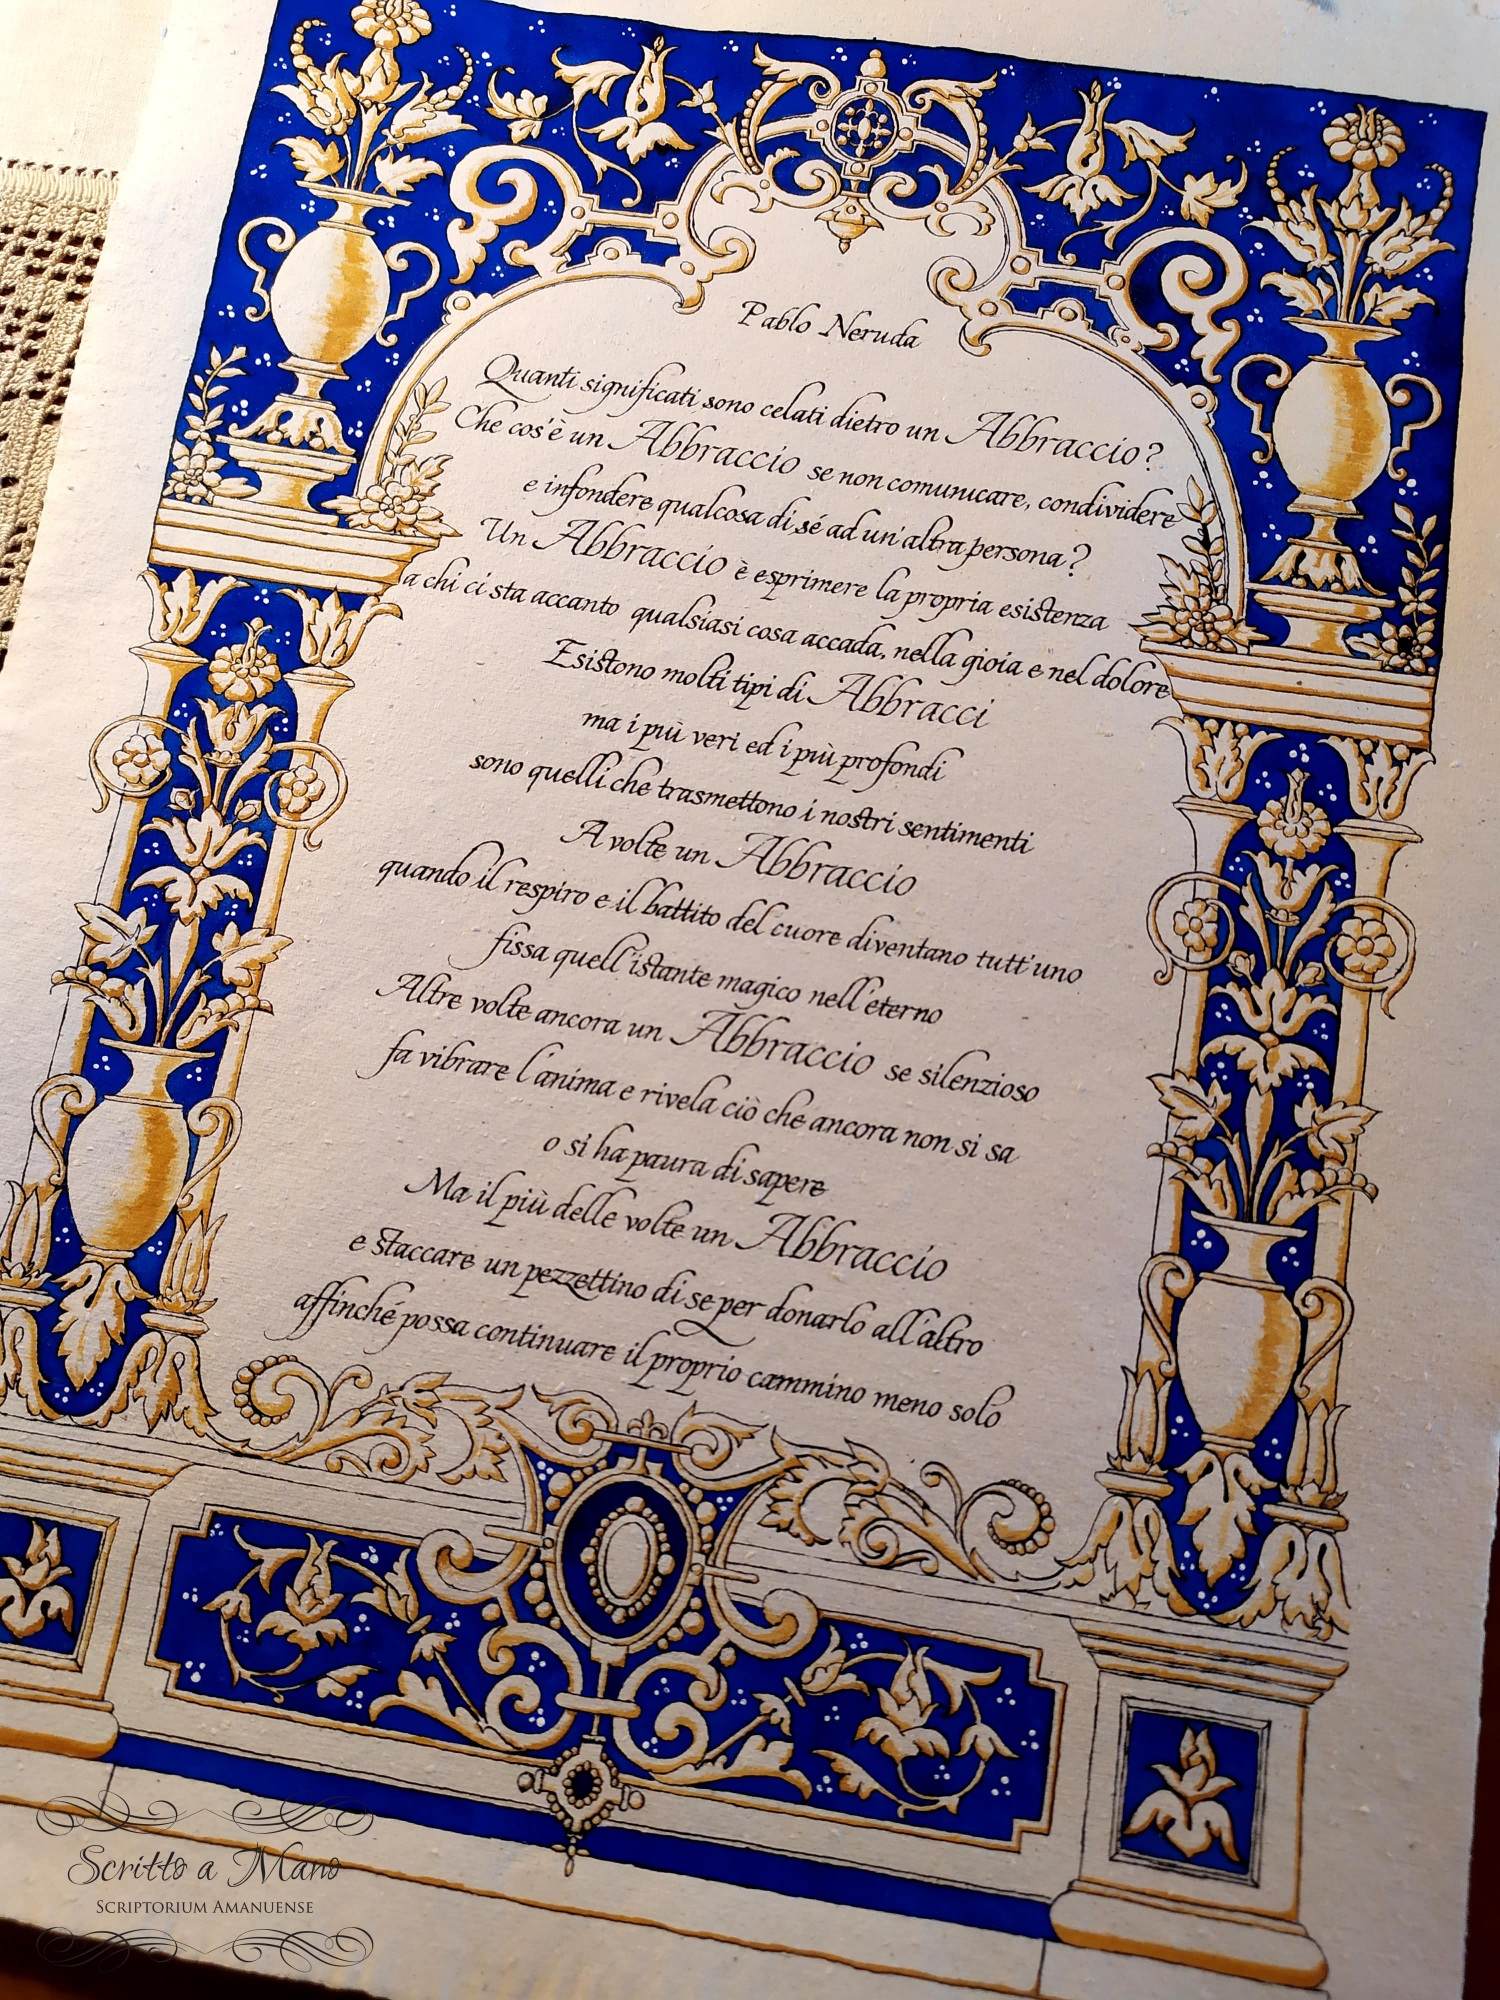 Pablo Neruda
Quanti significati sono celati dietro un Abbraccio?
Che cos'è un Abbraccio se non comunicare, condividere
e infondere qualcosa di sé ad un'altra persona?
Un Abbraccio è esprimere la propria esistenza
a chi ci sta accanto qualsiasi cosa accada, nella gioia e nel dolore
Esistono molti tipi di Abbracci
ma i più veri ed i più profondi
sono quelli che trasmettono i nostri sentimenti
A volte un Abbraccio
quando il respiro e il battito del cuore diventano tutt'uno
fissa quell'istante magico nell'eterno
Altre volte ancora un Abbraccio se silenzioso
fa vibrare l'anima e rivela ciò che ancora non si sa
o si ha paura di sapere
Ma il più delle volte un Abbraccio
e staccare un pezzettino di se per donarlo all'altro
affinché possa continuare il proprio cammino meno solo
Scritto a Mano
SCRIPTORIUM AMANUENSE